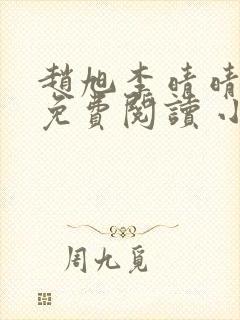 趙旭李晴晴
免費閱讀小
周九覓